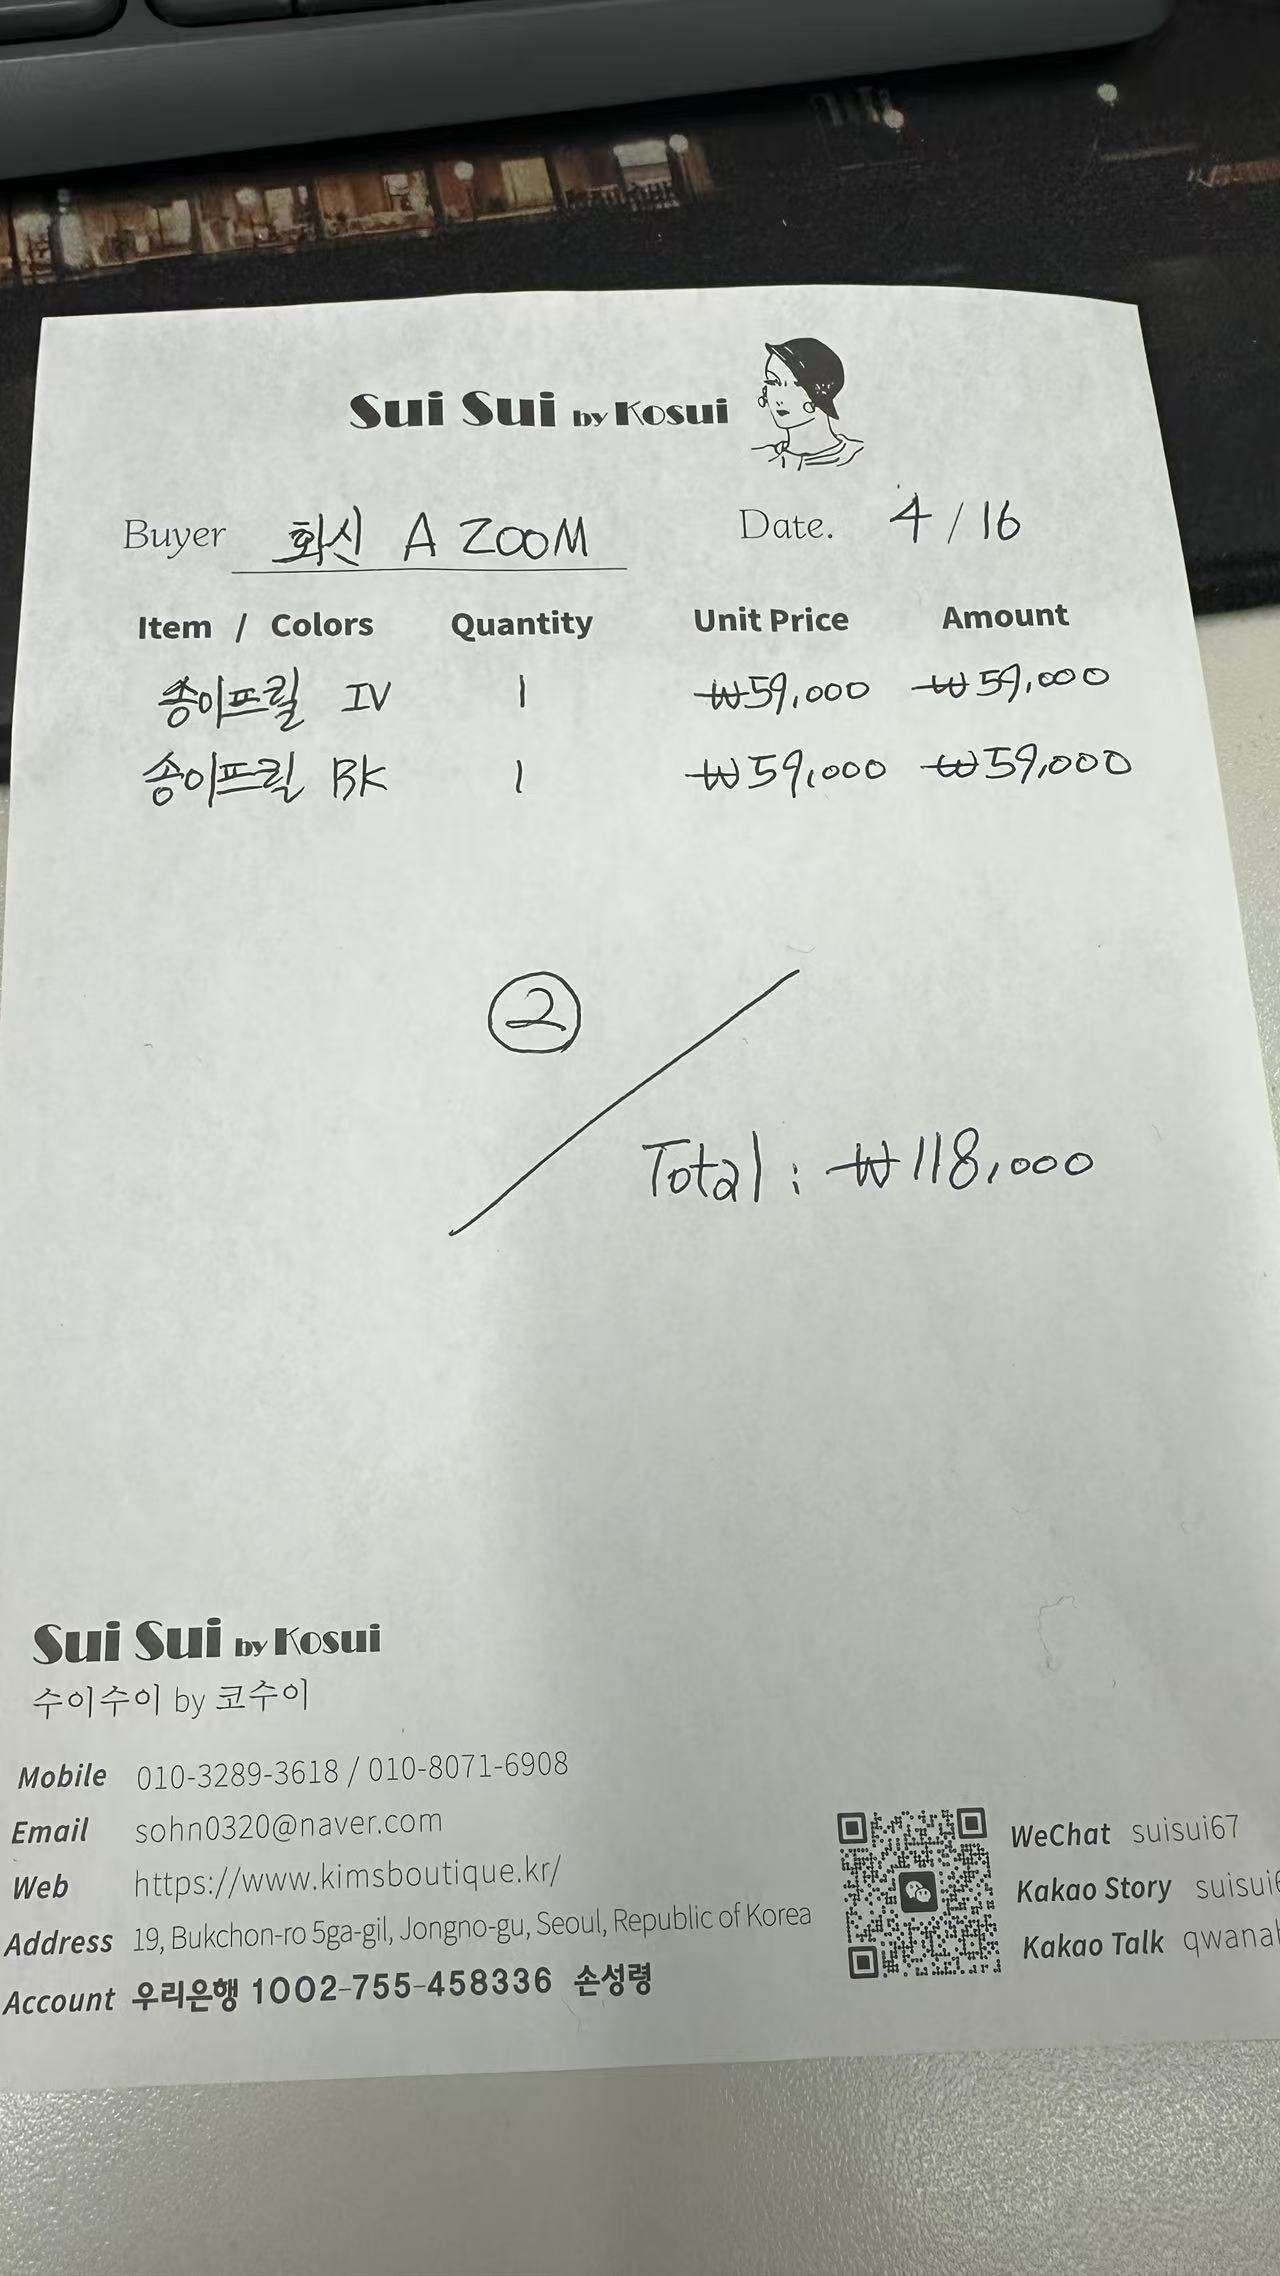 Sui Sui by Kosui
Buyer 화신 A ZOOM Date. 4/16
Item / Colors Quantity Unit Price Amount
송이프릴 IV 1 ₩59,000 ₩59,000
송이프릴 BK 1 ₩59,000 ₩59,000
2
Total : ₩118,000
Sui Sui by Kosui
수이수이 by 코수이
Mobile 010-3289-3618 / 010-8071-6908
Email sohn0320@naver.com
Web https://www.kimsboutique.kr/
Address 19, Bukchon-ro 5ga-gil, Jongno-gu, Seoul, Republic of Korea
Account 우리은행 1002-755-458336 손성령
WeChat suisui67
Kakao Story
Kakao Talk